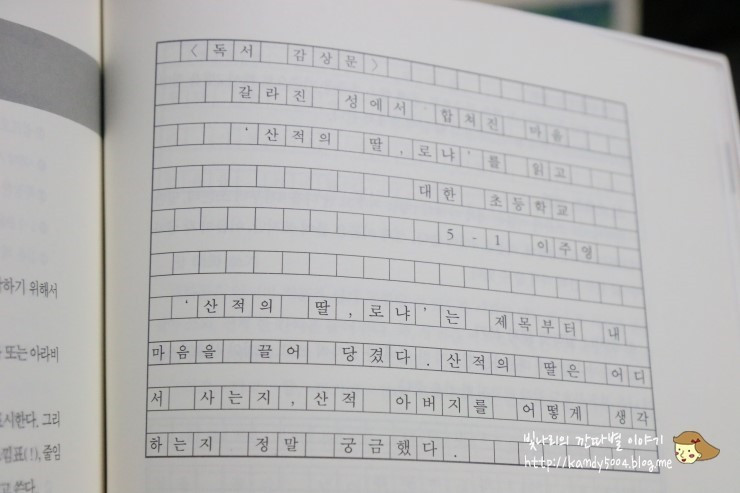 〈독서 감상문〉
갈라진 성에서 합쳐진 마음
‘산적의 딸, 로냐’를 읽고
대한 초등학교
5-1 이주영
‘산적의 딸, 로냐’는 제목부터 내
마음을 끌어 당겼다. 산적의 딸은 어디
서 사는지, 산적 아버지를 어떻게 생각
하는지 정말 궁금했다.
하기 위해서
또는 아라비
표시한다. 그리
낌표(!), 줄임
고 쓴다.
빛나리의 깐따별 이야기
http://kamdy5004.blog.me